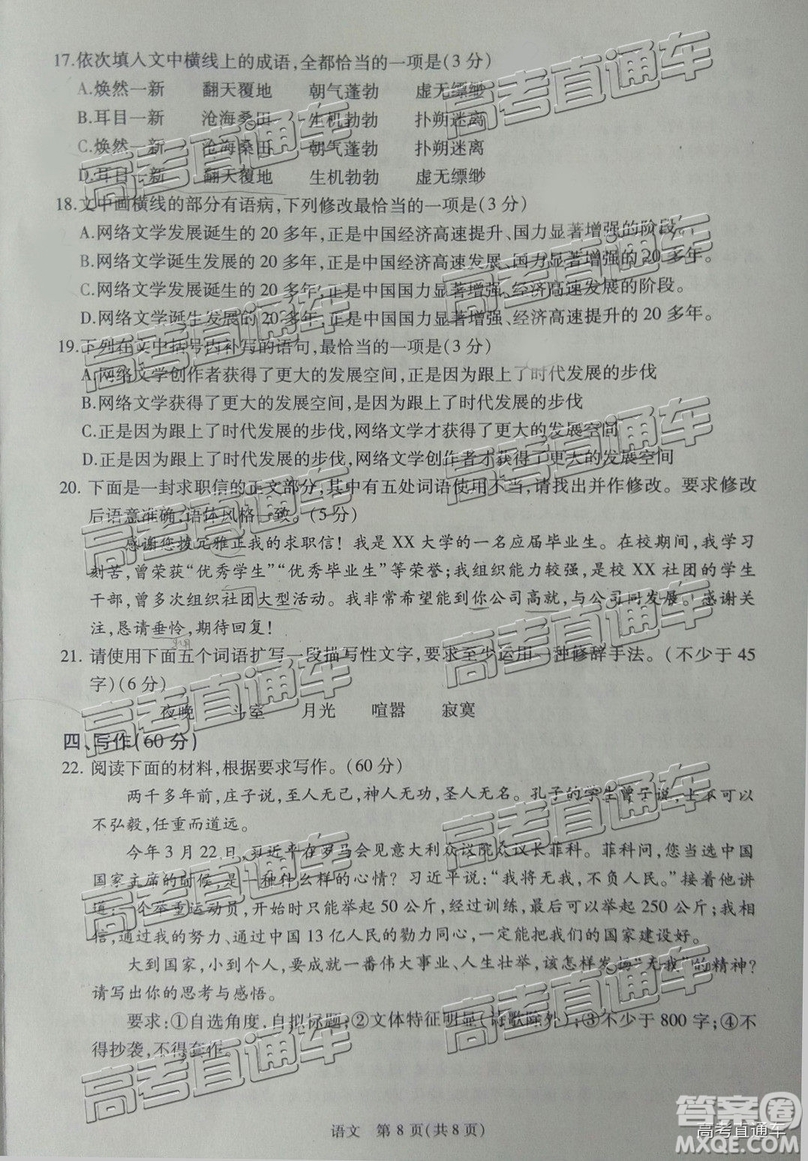 17.依次填入文中横线上的成语,全都恰当的一项是(3分)
A.焕然一新 翻天覆地 朝气蓬勃 虚无缥缈
B.耳目一新 沧海桑田 生机勃勃 扑朔迷离
C.焕然一新 沧海桑田 朝气蓬勃 扑朔迷离
D.耳目一新 翻天覆地 生机勃勃 虚无缥缈
18.文中画横线的部分有语病,下列修改最恰当的一项是(3分)
A.网络文学发展诞生的20多年,正是中国经济高速提升、国力显著增强的阶段。
B.网络文学诞生发展的20多年,正是中国经济高速发展、国力显著增强的20多年。
C.网络文学发展诞生的20多年,正是中国国力显著增强、经济高速发展的阶段。
D.网络文学诞生发展的20多年,正是中国国力显著增强、经济高速提升的20多年。
19.下列在文中括号内补写的语句,最恰当的一项是(3分)
A.网络文学创作者获得了更大的发展空间,正是因为跟上了时代发展的步伐
B.网络文学获得了更大的发展空间,是因为跟上了时代发展的步伐
C.正是因为跟上了时代发展的步伐,网络文学才获得了更大的发展空间
D.正是因为跟上了时代发展的步伐,网络文学创作者才获得了更大的发展空间
20.下面是一封求职信的正文部分,其中有五处词语使用不当,请找出并作修改。要求修改
后语意准确,语体风格一致。(5分)
感谢您拨冗雅正我的求职信！我是XX大学的一名应届毕业生。在校期间,我学习
刻苦,曾荣获“优秀学生”“优秀毕业生”等荣誉;我组织能力较强,是校XX社团的学生
干部,曾多次组织社团大型活动。我非常希望能到你公司高就,与公司同发展。感谢关
注,恳请垂怜,期待回复！
21.请使用下面五个词语扩写一段描写性文字,要求至少运用一种修辞手法。(不少于45
字)(6分)
夜晚 斗室 月光 喧嚣 寂寞
四、写作(60分)
22.阅读下面的材料,根据要求写作。(60分)
两千多年前,庄子说,至人无己,神人无功,圣人无名。孔子的学生曾子说,士不可以
不弘毅,任重而道远。
今年3月22日,习近平在罗马会见意大利众议院众议长菲科。菲科问,您当选中国
国家主席的时候,是一种什么样的心情？习近平说:“我将无我,不负人民。”接着他讲
道,一个举重运动员,开始时只能举起50公斤,经过训练,最后可以举起250公斤;我相
信,通过我的努力、通过中国13亿人民的勠力同心,一定能把我们的国家建设好。
大到国家,小到个人,要成就一番伟大事业、人生壮举,该怎样发扬“无我”的精神？
请写出你的思考与感悟。
要求:①自选角度,自拟标题;②文体特征明显(诗歌除外);③不少于800字;④不
得抄袭,不得套作。
语文 第8页(共8页)
高考直通车
答案圈
高考直通车
MXQE.COM